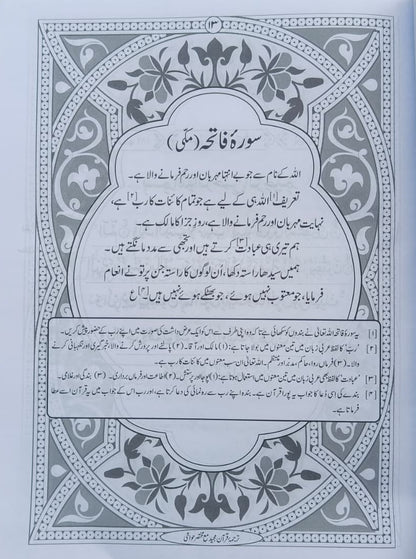 ۱۳
سورۂ فاتحہ (مکّی)
اللہ کے نام سے جو بے انتہا مہربان اور رحم فرمانے والا ہے۔
تعریف [۱] اللہ ہی کے لیے ہے جو تمام کائنات کا رب [۲] ہے،
نہایت مہربان اور رحم فرمانے والا ہے، روزِ جزا کا مالک ہے۔
ہم تیری ہی عبادت [۳] کرتے ہیں اور تجھی سے مدد مانگتے ہیں۔
ہمیں سیدھا راستہ دکھا، اُن لوگوں کا راستہ جن پر تو نے انعام
فرمایا، جو معتوب نہیں ہوئے، جو بھٹکے ہوئے نہیں ہیں [۴] ع
[۱] یہ سورۂ فاتحہ اللہ تعالیٰ نے بندوں کو سکھائی ہے تاکہ وہ اپنی طرف سے اس کو ایک عرض داشت کی صورت میں اپنے رب کے حضور پیش کریں۔
[۲] ”رب“ کا لفظ عربی زبان میں تین معنوں میں بولا جاتا ہے: (۱) مالک اور آقا۔ (۲) پالنے اور پرورش کرنے والا، خبرگیری اور نگہبانی کرنے
والا۔ (۳) فرماں روا، حاکم، مدبّر اور منتظم۔ اللہ تعالیٰ ان سب معنوں میں کائنات کا رب ہے۔
[۳] ”عبادت“ کا لفظ بھی عربی زبان میں تین معنوں میں استعمال ہوتا ہے: (۱) پوجا اور پرستش۔ (۲) اطاعت اور فرماں برداری۔ (۳) بندگی اور غلامی۔
[۴] بندے کی اسی دُعا کا جواب یہ پورا قرآن ہے۔ بندہ اپنے رب سے رہنمائی کی دعا کرتا ہے، اور رب اس کے جواب میں یہ قرآن اسے عطا
فرماتا ہے۔
ترجمۂ قرآن مجید مع مختصر حواشی